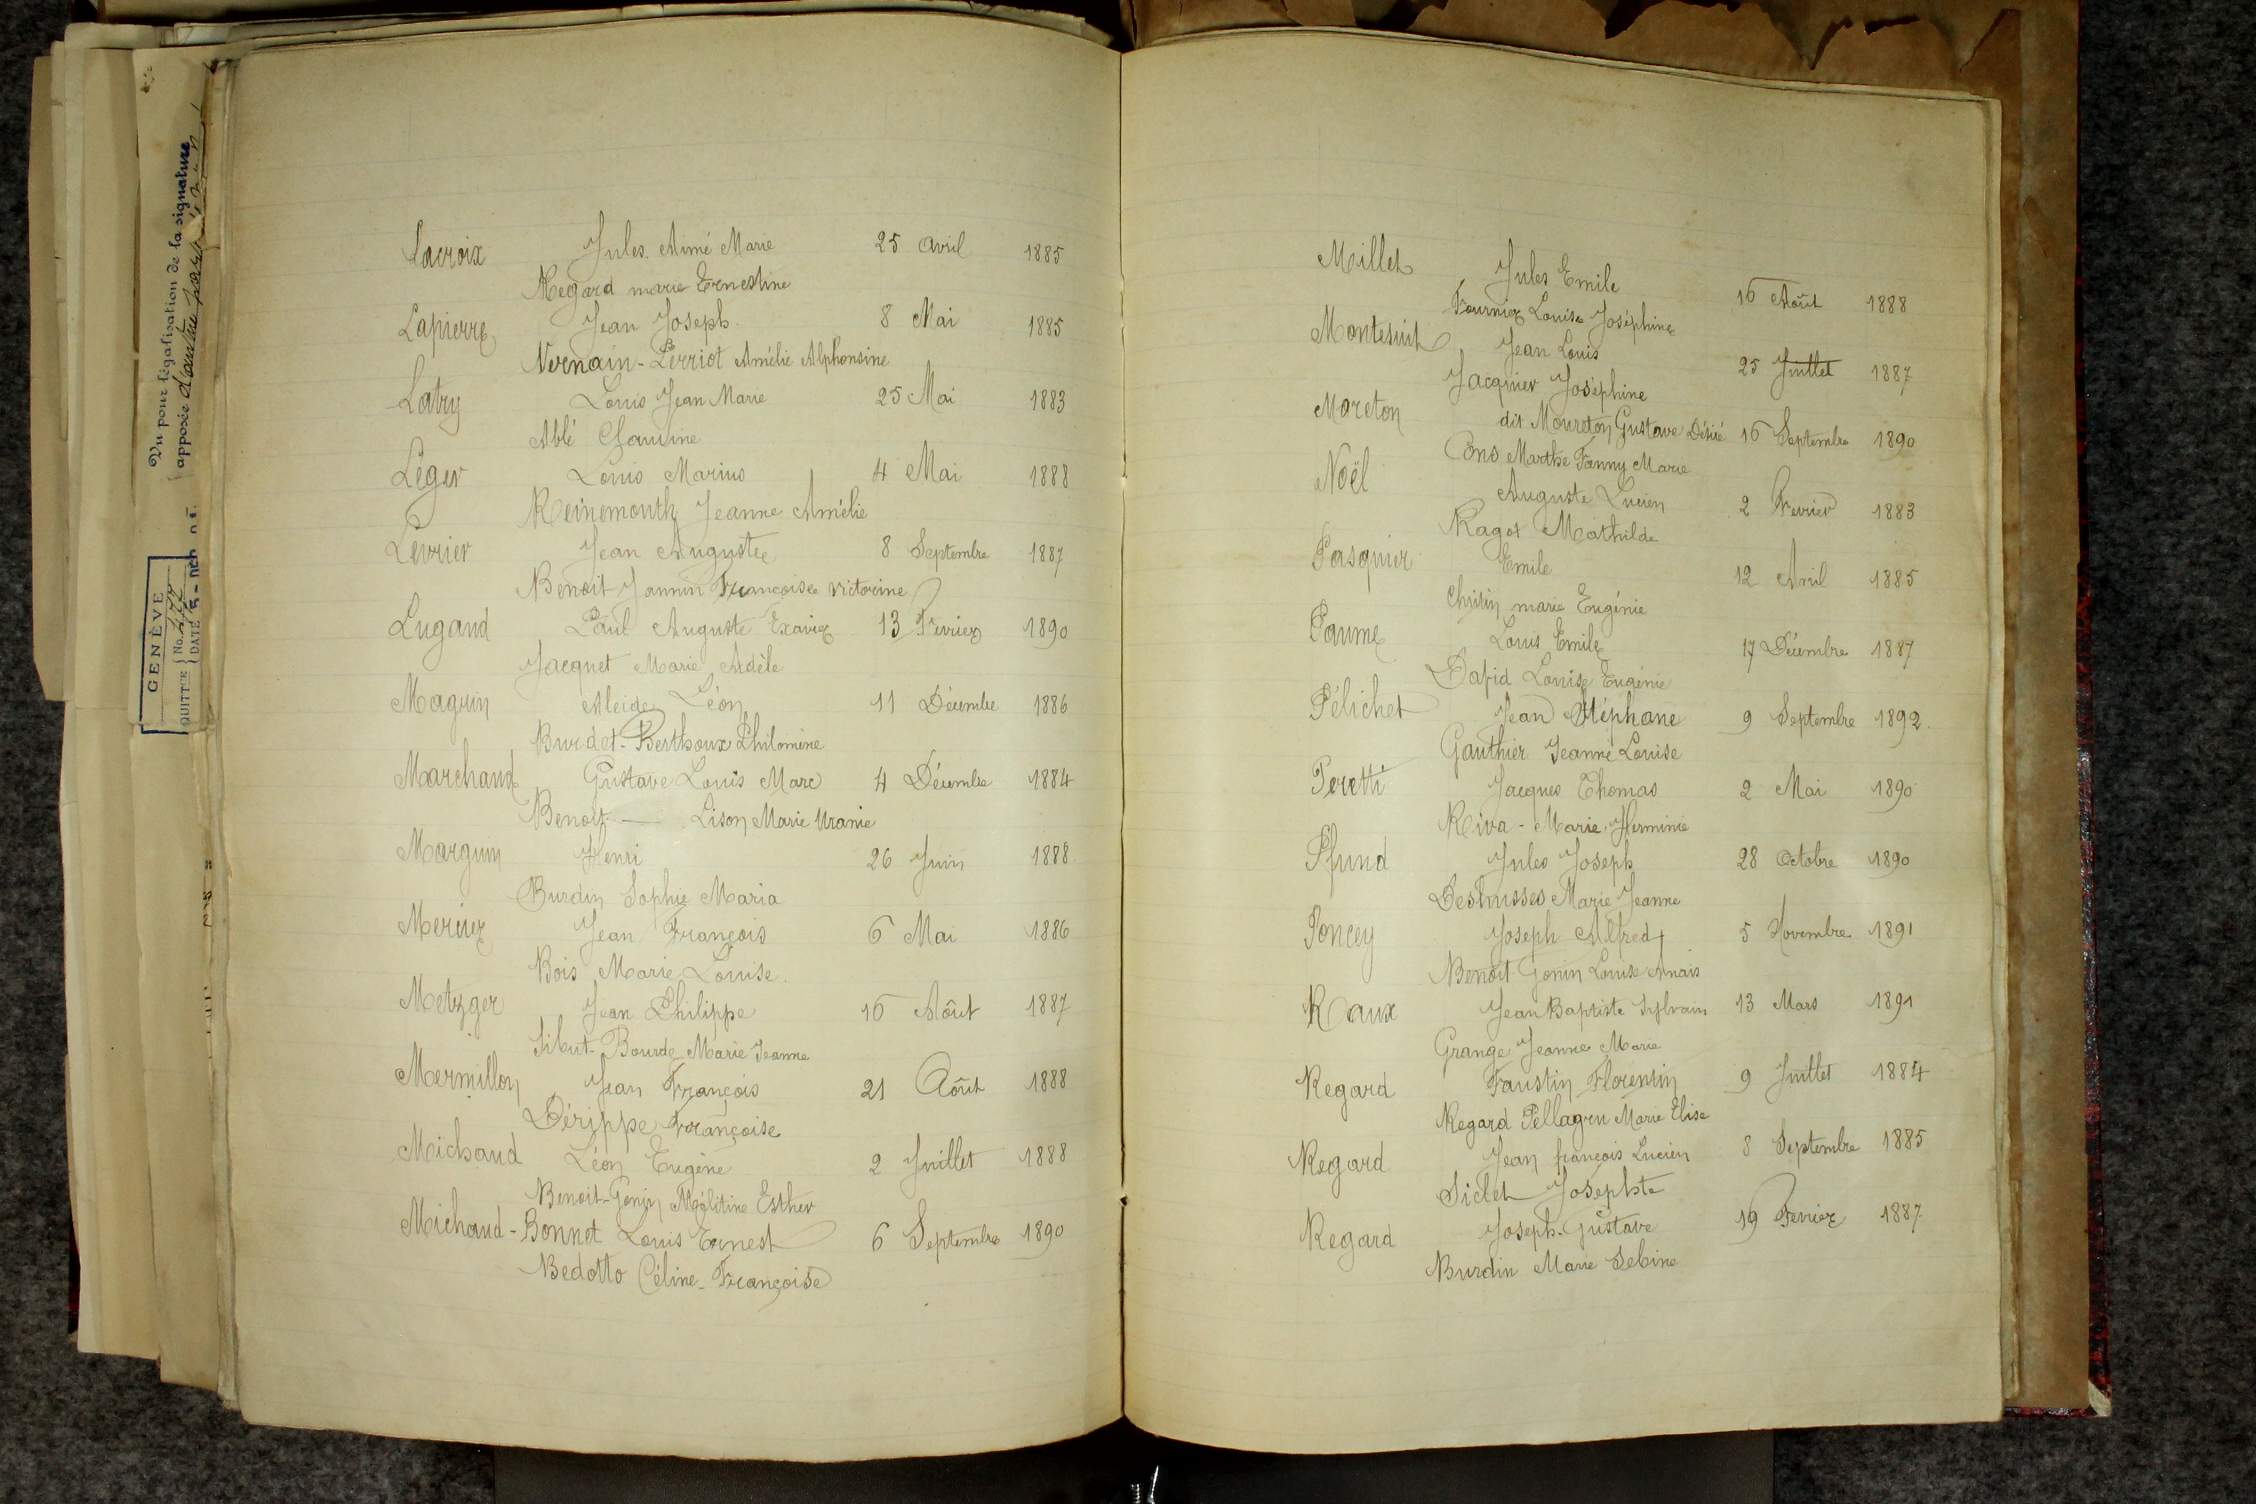 Vu pour légalisation de la signature
apposée d'autre part
GENÈVE
QUITT'E No.
DATE
Lacroix Jules. Aimé Marie 25 avril 1885
Regard marie Ernestine
Lapierre Jean Joseph 8 Mai 1885
Vernain-Lerriot Amélie Alphonsine
Latry Louis Jean Marie 25 Mai 1883
Ablé Claudine
Léger Louis Marius 4 Mai 1888
Reinemouth Jeanne Amélie
Levrier Jean Auguste 8 Septembre 1887
Benoit Jannin Françoise victorine
Lugand Paul Auguste Exavier 13 Fevrier 1890
Jacquet Marie Adèle
Maguin Alcide Léon 11 Décembre 1886
Burdet-Berthoux Philomine
Marchand Gustave Louis Marc 4 Décembre 1884
Benoit — Lison Marie Uranie
Marguin Henri 26 Juin 1888
Burdin Sophie Maria
Mercier Jean François 6 Mai 1886
Bois Marie Louise.
Metzger Jean Philippe 16 Aôut 1887
Sibut-Bourde Marie Jeanne
Mermillon Jean François 21 Aôut 1888
Dérippe Françoise
Michaud Léon Eugène 2 Juillet 1888
Benoit-Gonin Mélitine Esther
Michaud-Bonnet Louis Ernest 6 Septembre 1890
Bedotto Céline-Françoise
Millet Jules Emile 16 Août 1888
Fournier Louise Joséphine
Montesuit Jean Louis 25 Juillet 1887
Jacquier Joséphine
Moreton dit Moureton Gustave Désiré 16 Septembre 1890
Cons Marthe Fanny Marie
Noël Auguste Lucien 2 Fevrier 1883
Ragot Mathilde
Pasquier Emile 12 Avril 1885
Christin marie Eugénie
Paume Louis Emile 17 Décembre 1887
David Louise Eugénie
Pélichet Jean Stéphane 9 Septembre 1892.
Gauthier Jeanne Louise
Peretti Jacques Thomas 2 Mai 1890
Riva - Marie Herminie
Pfund Jules Joseph 28 Octobre 1890
Deshusses Marie Jeanne
Poncey Joseph Alfred 5 Novembre 1891
Benoit Gonin Louise Anais
Raux Jean Baptiste Sylvain 13 Mars 1891
Grange Jeanne Marie
Regard Faustin Florentin 9 Juillet 1884
Regard Pellagru Marie Elise
Regard Jean françois Lucien 8 Septembre 1885
Siclet Josephte
Regard Joseph-Gustave 19 Fevrier 1887
Burdin Marie Sebine